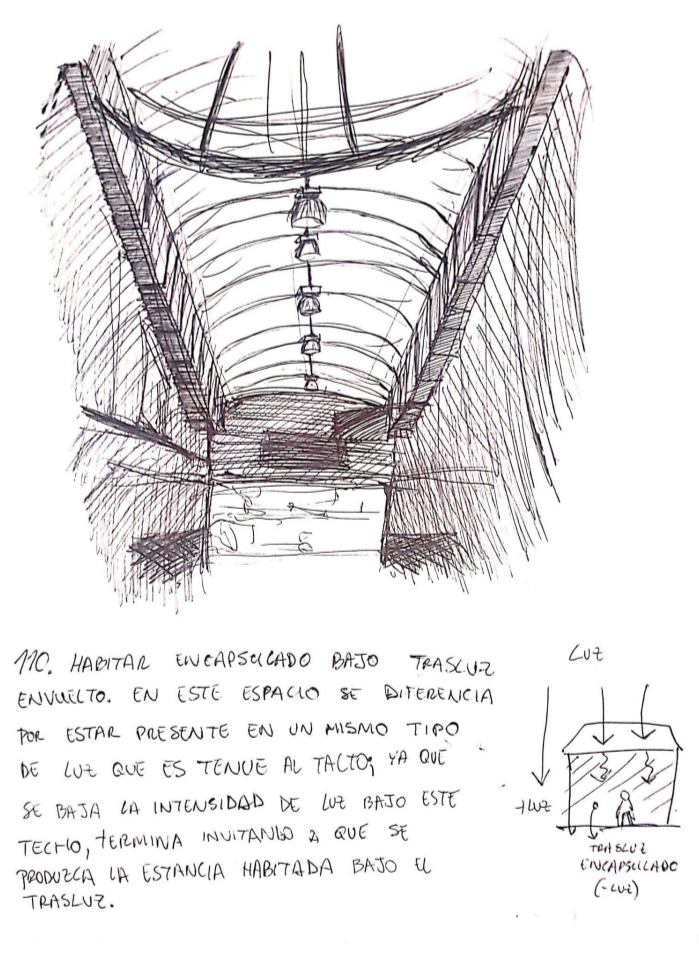 110. HABITAR ENCAPSULADO BAJO TRASLUZ
ENVUELTO. EN ESTE ESPACIO SE DIFERENCIA
POR ESTAR PRESENTE EN UN MISMO TIPO
DE LUZ QUE ES TENUE AL TACTO; YA QUE
SE BAJA LA INTENSIDAD DE LUZ BAJO ESTE
TECHO, TERMINA INVITANDO A QUE SE
PRODUZCA LA ESTANCIA HABITADA BAJO EL
TRASLUZ.
LUZ
+LUZ
TRASLUZ
ENCAPSULADO
(-LUZ)